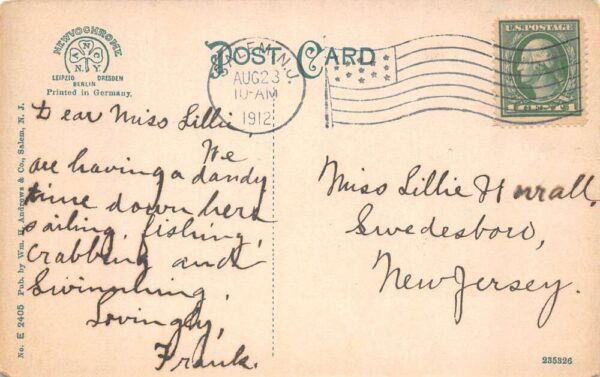 NEWVOCHROME
ANC
N.Y.
LEIPZIG DRESDEN
BERLIN
Printed in Germany.
POST CARD
SALEM, N.J.
AUG 23
10-AM
1912
U.S. POSTAGE
No. E 2405 Pub. by Wm. H. Andrews & Co., Salem, N. J.
Dear Miss Lillie,
We
are having a dandy
time down here
sailing, fishing,
crabbing and
Swimming.
Lovingly,
Frank.
Miss Lillie
Swedesboro,
New Jersey.
235326